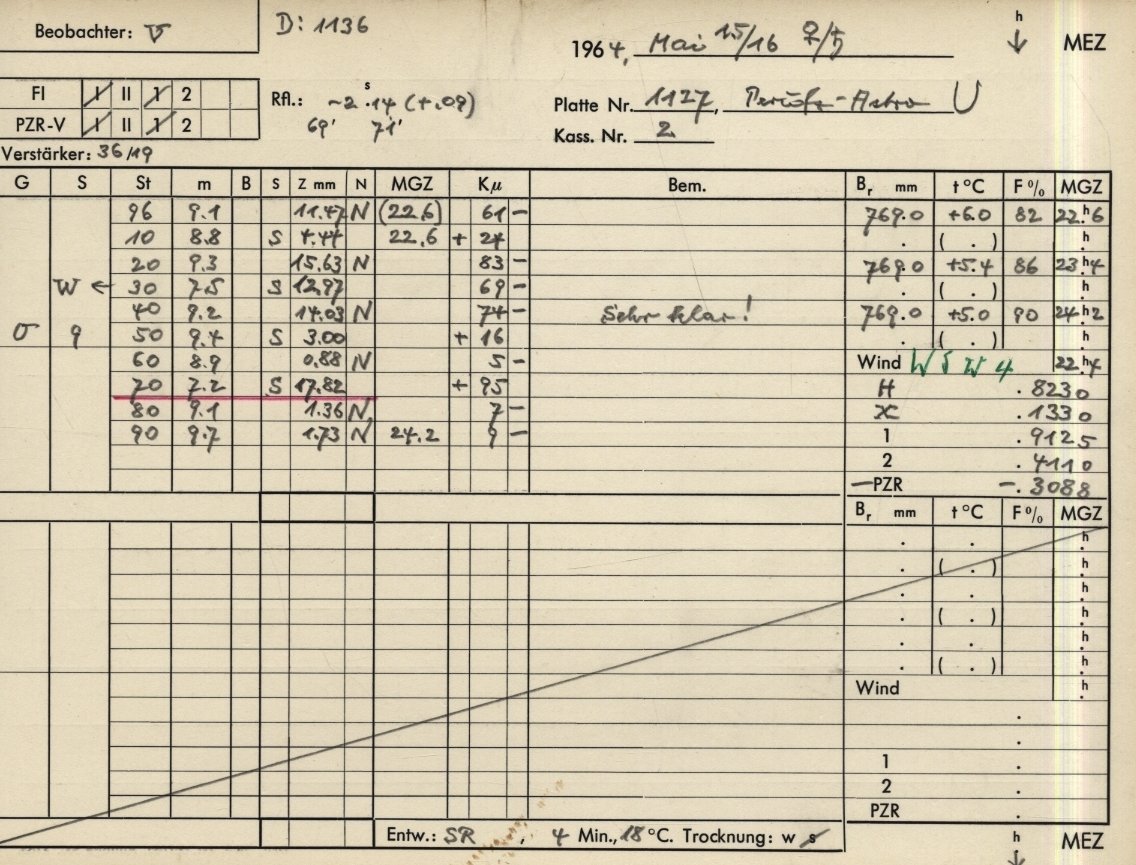 Beobachter: D: 1136
1964, Mai 15/16 ♀/♄ h ↓ MEZ
FI I II 1 2
PZR-V I II 1 2
Rfl.: ~2 s .14 (+.09)
69' 71'
Platte Nr. 1127, -Astro U
Kass. Nr. 2
Verstärker: 36/19
G S St m B S Z mm N MGZ Kμ Bem. Br mm t °C F % MGZ
96 9.1 11.47 N (22.6) 61 − 769.0 +6.0 82 22.h6
10 8.8 S 4.44 22.6 + 24 . ( . ) h.
20 9.3 15.63 N 83 − 769.0 +5.4 86 23.h4
W ← 30 7.5 S 12.97 69 − . ( . ) h.
40 9.2 14.03 N 74 − Sehr klar! 769.0 +5.0 90 24.h2
σ 9 50 9.4 S 3.00 + 16 . ( . ) h.
60 8.9 0.88 N 5 − Wind WSW 4 22.h4
70 7.2 S 17.82 + 95 H .8230
80 9.1 1.36 N 7 − x .1330
90 9.7 1.73 N 24.2 9 − 1 .9125
2 .4110
−PZR −.3088
Br mm t °C F % MGZ
. . h.
. ( . ) h.
. . h.
. ( . ) h.
. . h.
. ( . ) h.
Wind h.
.
.
1 .
2 .
PZR .
Entw.: SR, 4 Min., 18 °C. Trocknung: w s h ↓ MEZ